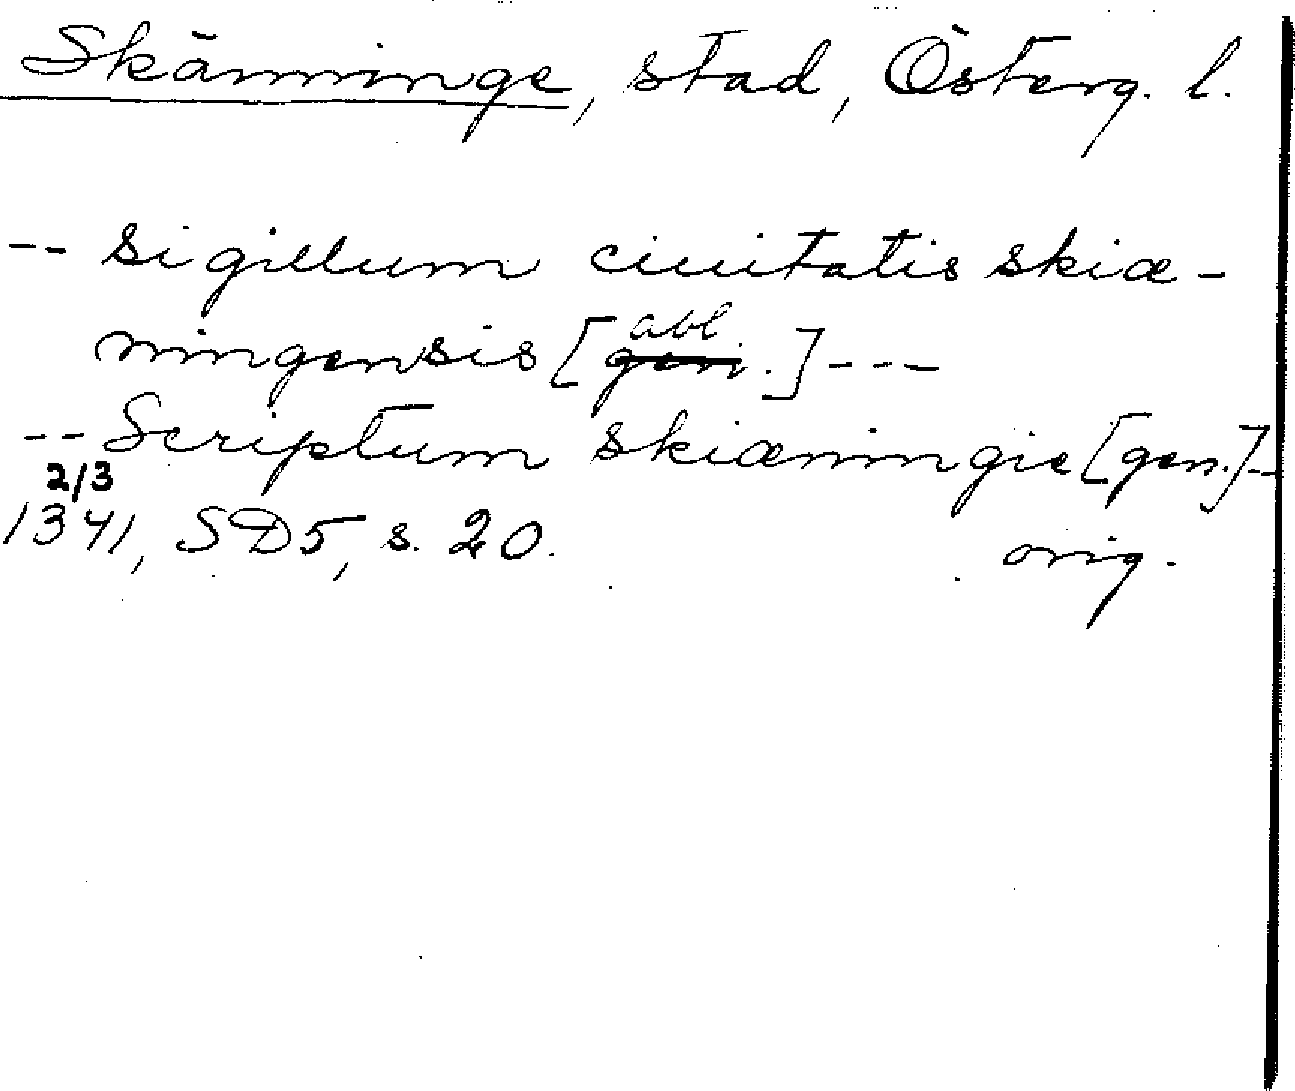 Skänninge, stad, Österg. l.
-- sigillum ciuitatis skiæ-
ningensis [gen. abl] ---
-- Scriptum skiæningie [gen.]--
2/3
1341, SD5, s. 20.
orig.